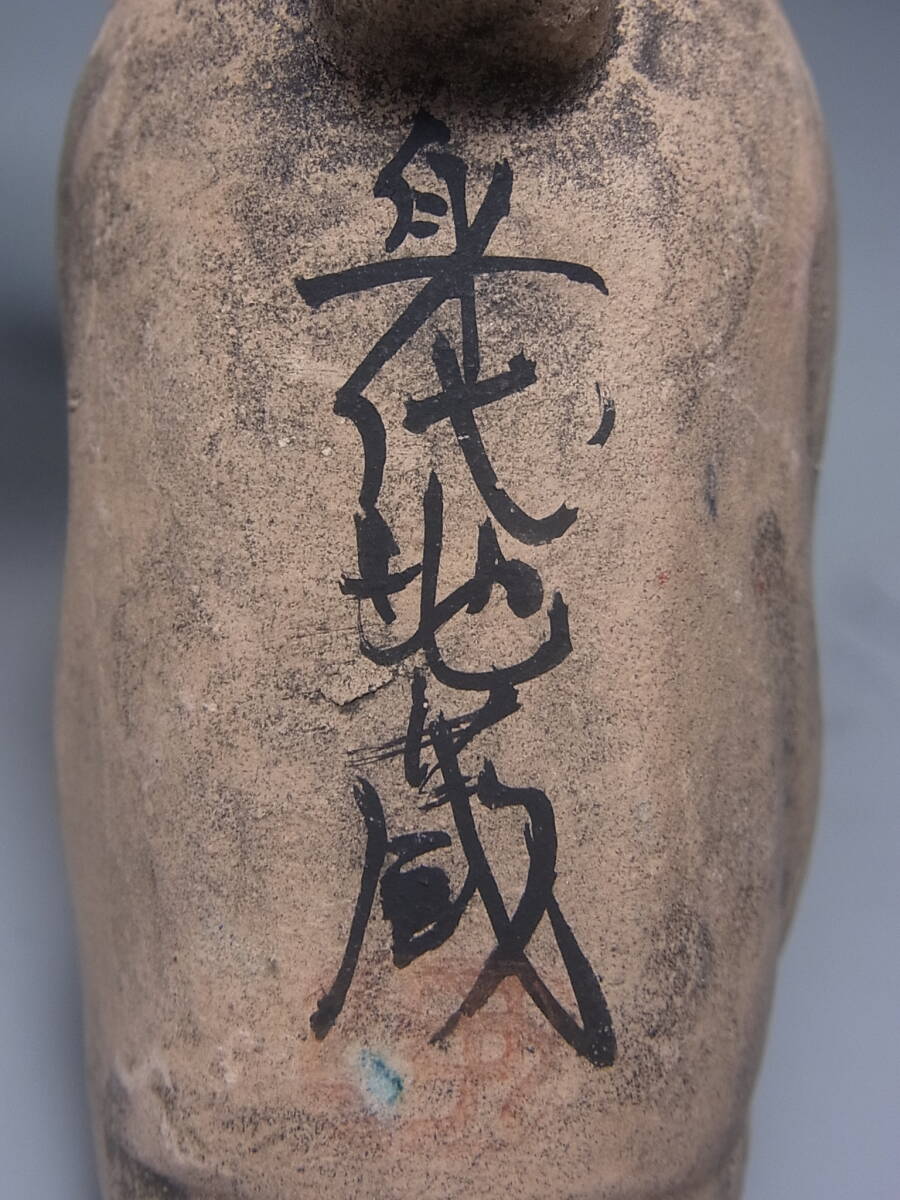 身代地蔵